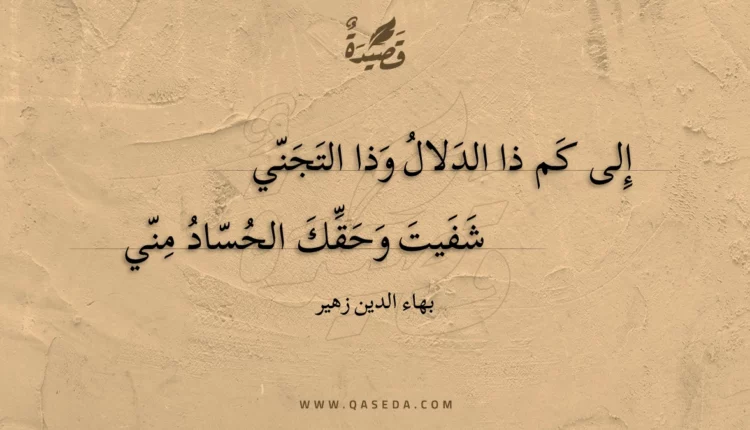 قَصِيدَةٌ
إِلى كَم ذا الدَلالُ وَذا التَجَنّي
شَفَيتَ وَحَقِّكَ الحُسّادُ مِنّي
بهاء الدين زهير
WWW.QASEDA.COM